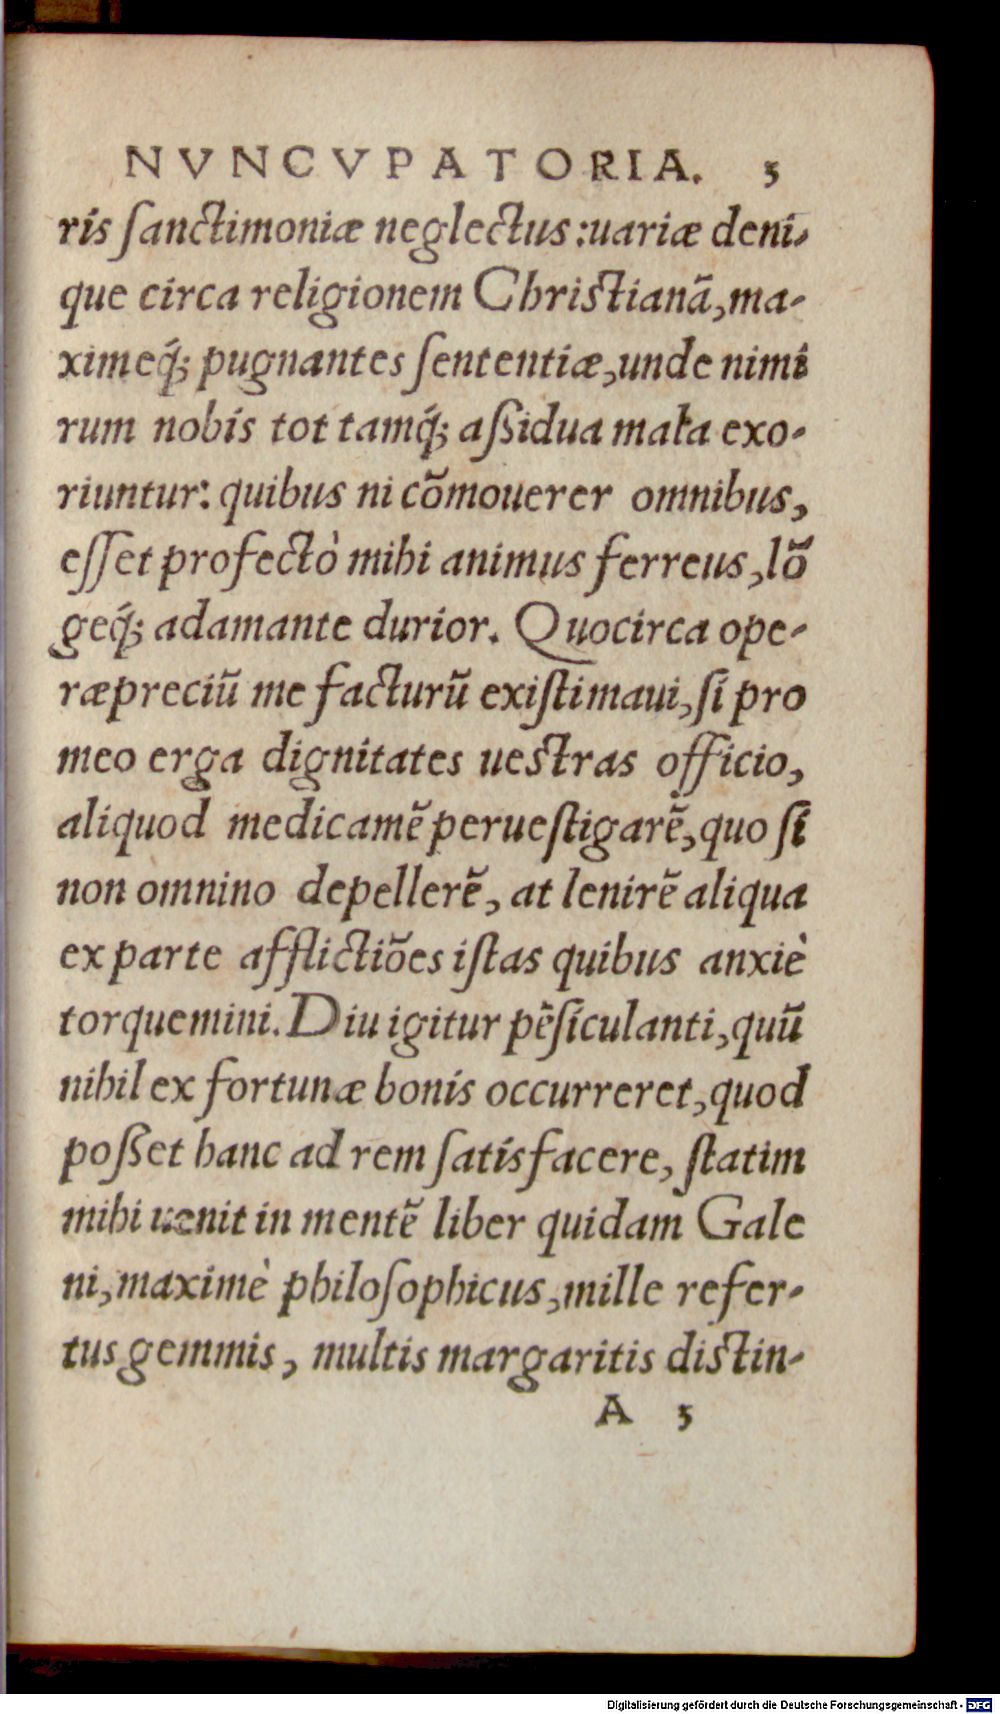 NVNCVPATORIA. 5
ris ſanctimoniæ neglectus:uariæ deni-
que circa religionem Chriſtianã,ma-
ximeq́; pugnantes ſententiæ,unde nimi
rum nobis tot tamq́; aßidua mala exo-
riuntur: quibus ni cõmouerer omnibus,
eſſet profectò mihi animus ferreus,lõ
geq́; adamante durior. Quocirca ope-
ræpreciũ me facturũ exiſtimaui,ſi pro
meo erga dignitates ueſtras officio,
aliquod medicamẽ perueſtigarẽ,quo ſi
non omnino depellerẽ, at lenirẽ aliqua
ex parte afflictiões iſtas quibus anxiè
torquemini. Diu igitur pẽſiculanti,quũ
nihil ex fortunæ bonis occurreret,quod
poßet hanc ad rem ſatisfacere, ſtatim
mihi uenit in mentẽ liber quidam Gale
ni,maximè philoſophicus,mille refer-
tus gemmis, multis margaritis diſtin-
A 5
Digitalisierung gefördert durch die Deutsche Forschungsgemeinschaft - DFG